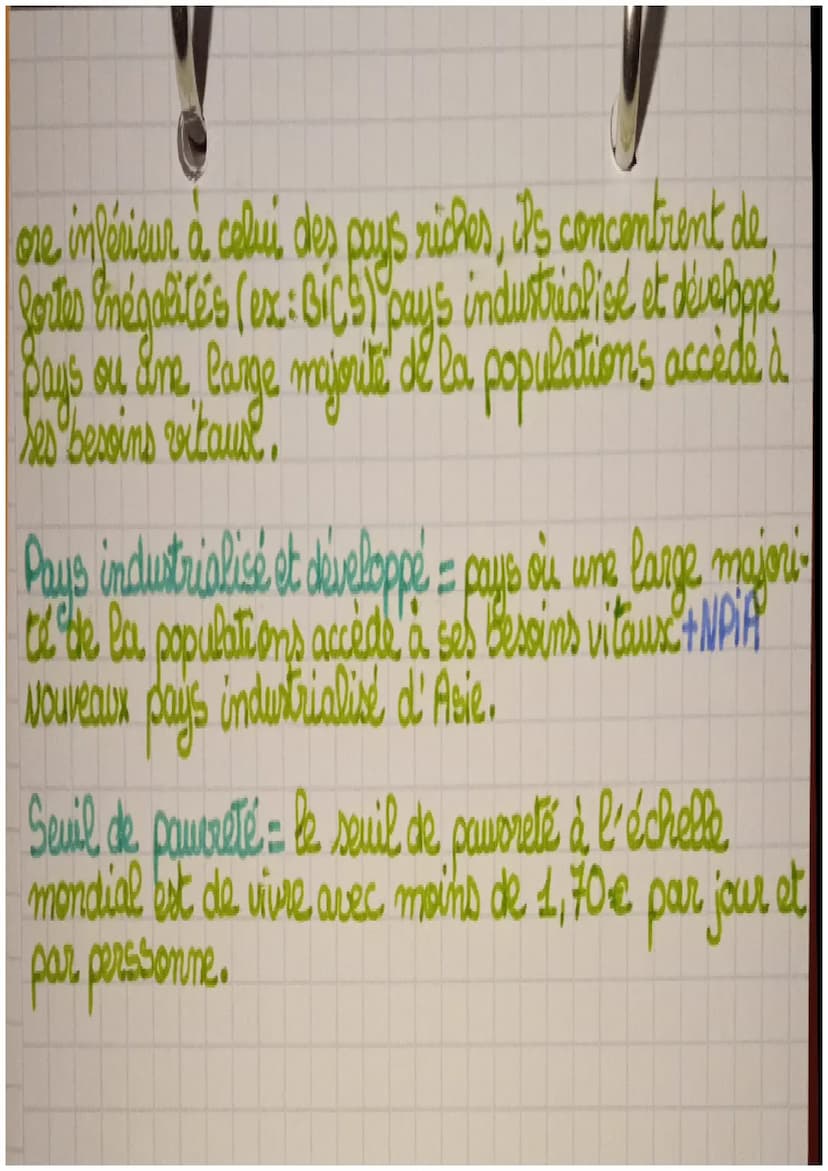 ore inférieur à celui des pays riches, ils concentrent de
fortes inégalités (ex : BiCS) pays industrialisé et développé
pays ou une large majorité de la populations accède à
ses besoins vitaux.
Pays industrialisé et développé = pays où une large majori-
té de la populations accède à ses besoins vitaux +NPiA
Nouveaux pays industrialisé d'Asie.
Seuil de pauvreté = le seuil de pauvreté à l'échelle
mondial est de vivre avec moins de 1,70€ par jour et
par perssonne.